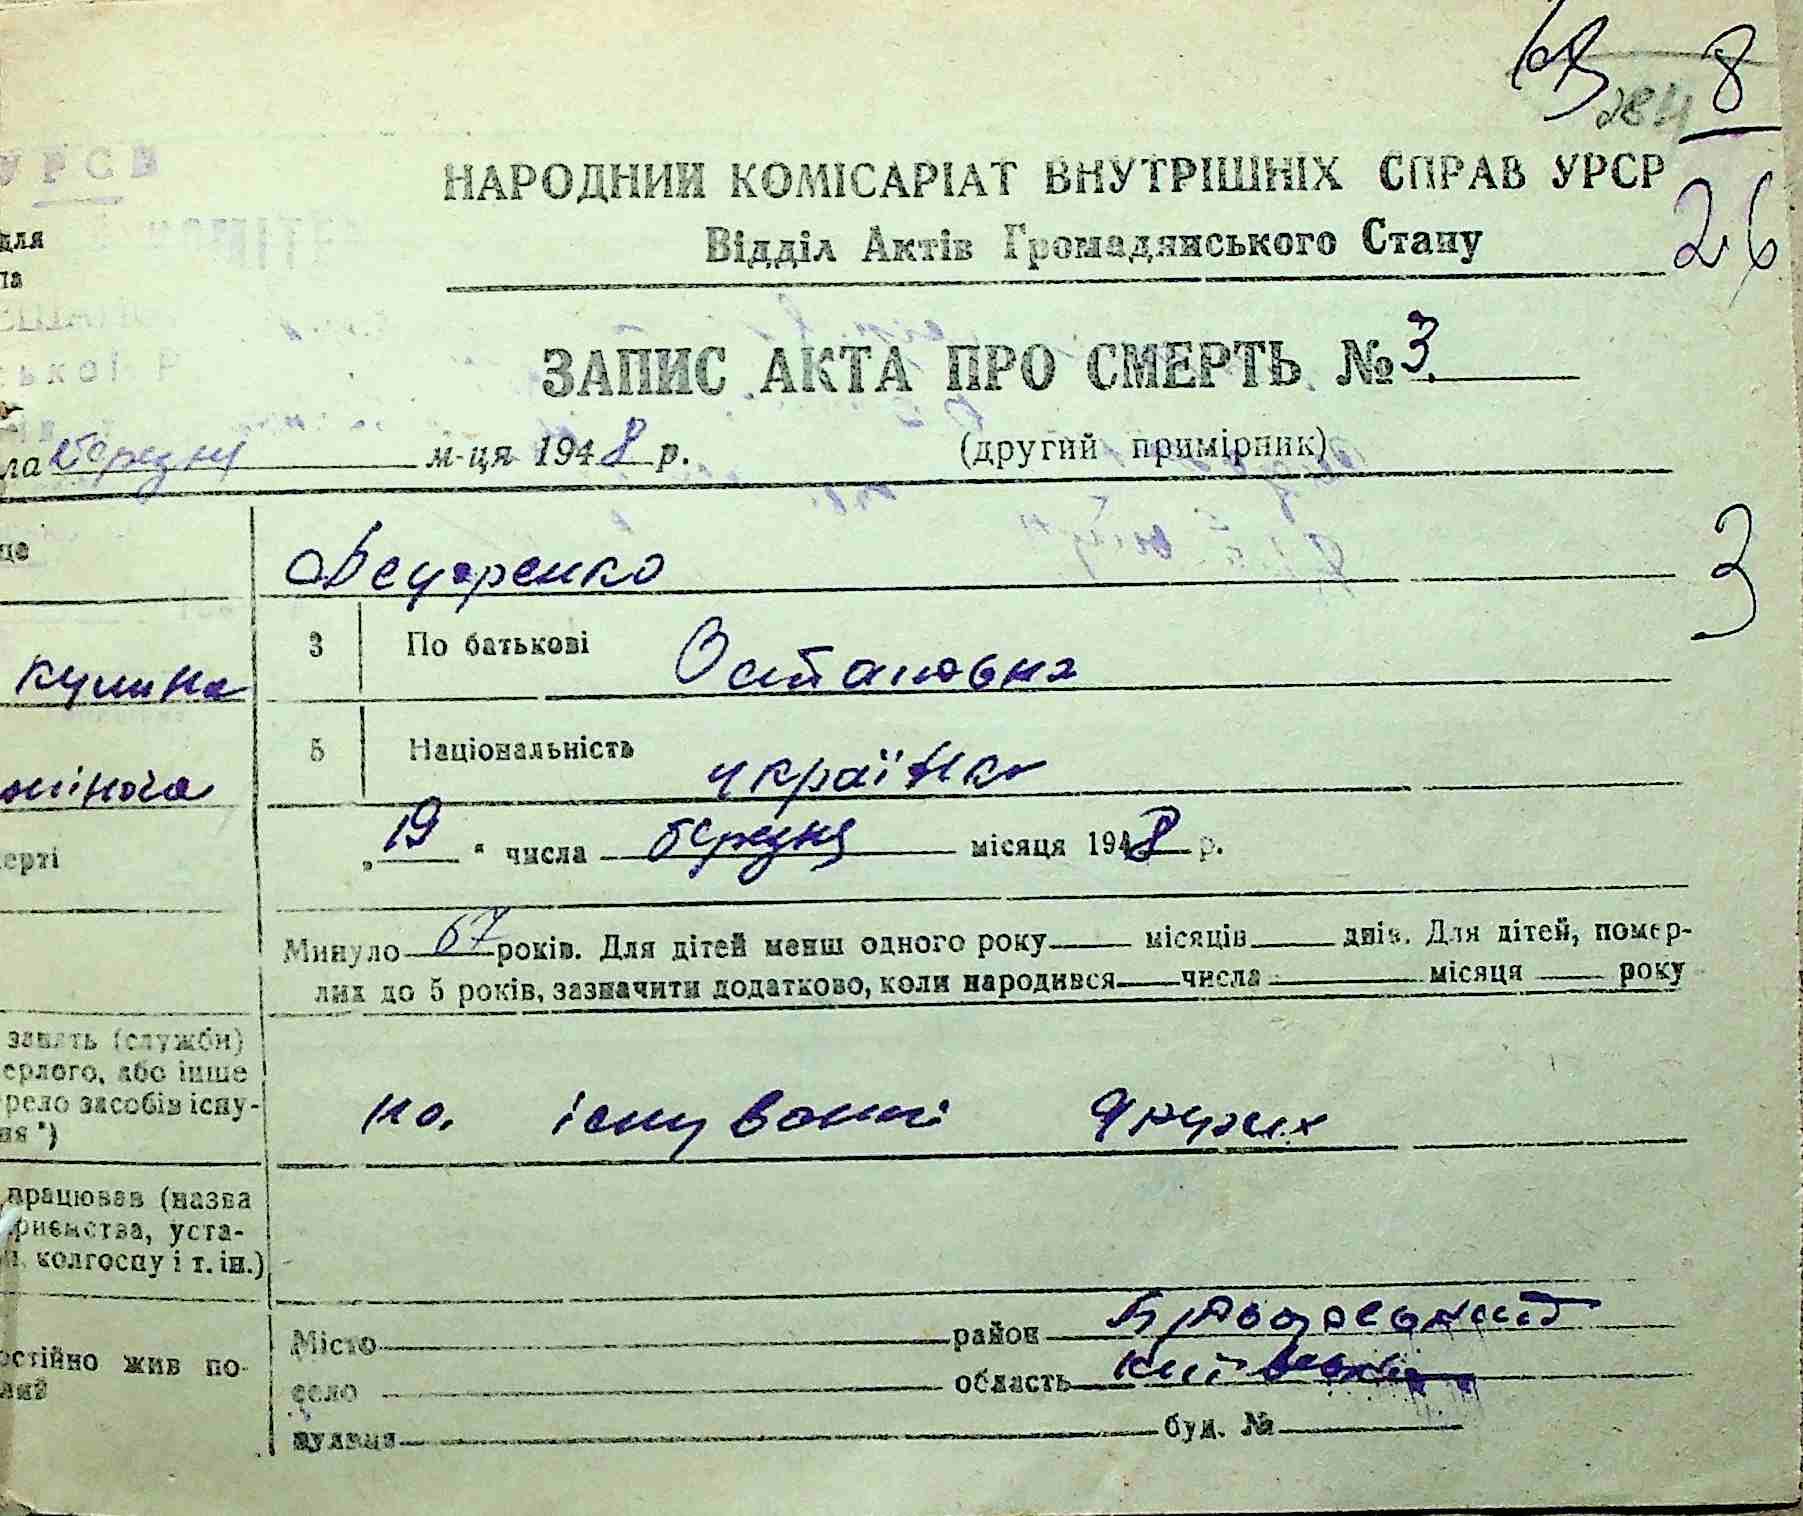 8
284
НАРОДНИЙ КОМІСАРІАТ ВНУТРІШНІХ СПРАВ УРСР
26
Відділ Актів Громадянського Стану
для
ла
ЗАПИС АКТА ПРО СМЕРТЬ № 3
ла березня м-ця 1948 р. (другий примірник)
3
ще
3 По батькові Остаповна
кулина
5 Національність українка
жіноча
ерті „19“ числа березня місяця 1948 р.
Минуло 67 років. Для дітей менш одного року місяців днів. Для дітей, помер-
лих до 5 років, зазначити додатково, коли народився числа місяця року
занять (служби)
ерлого, або інше
рело засобів існу-
ня *)
на існуванні других
працював (назва
приємства, уста-
и, колгоспу і т. ін.)
Місто район
остійно жив по-
лий
село область київська
вулиця буд. №